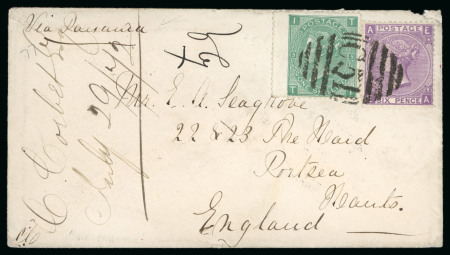 Via Panama
Mr. E. H. Seagrove
22 & 23 The Hard
Portsea
Hants.
England
C. Corbet
July 29/72
I T
POSTAGE
T
A E
POSTAGE
SIX PENCE
A